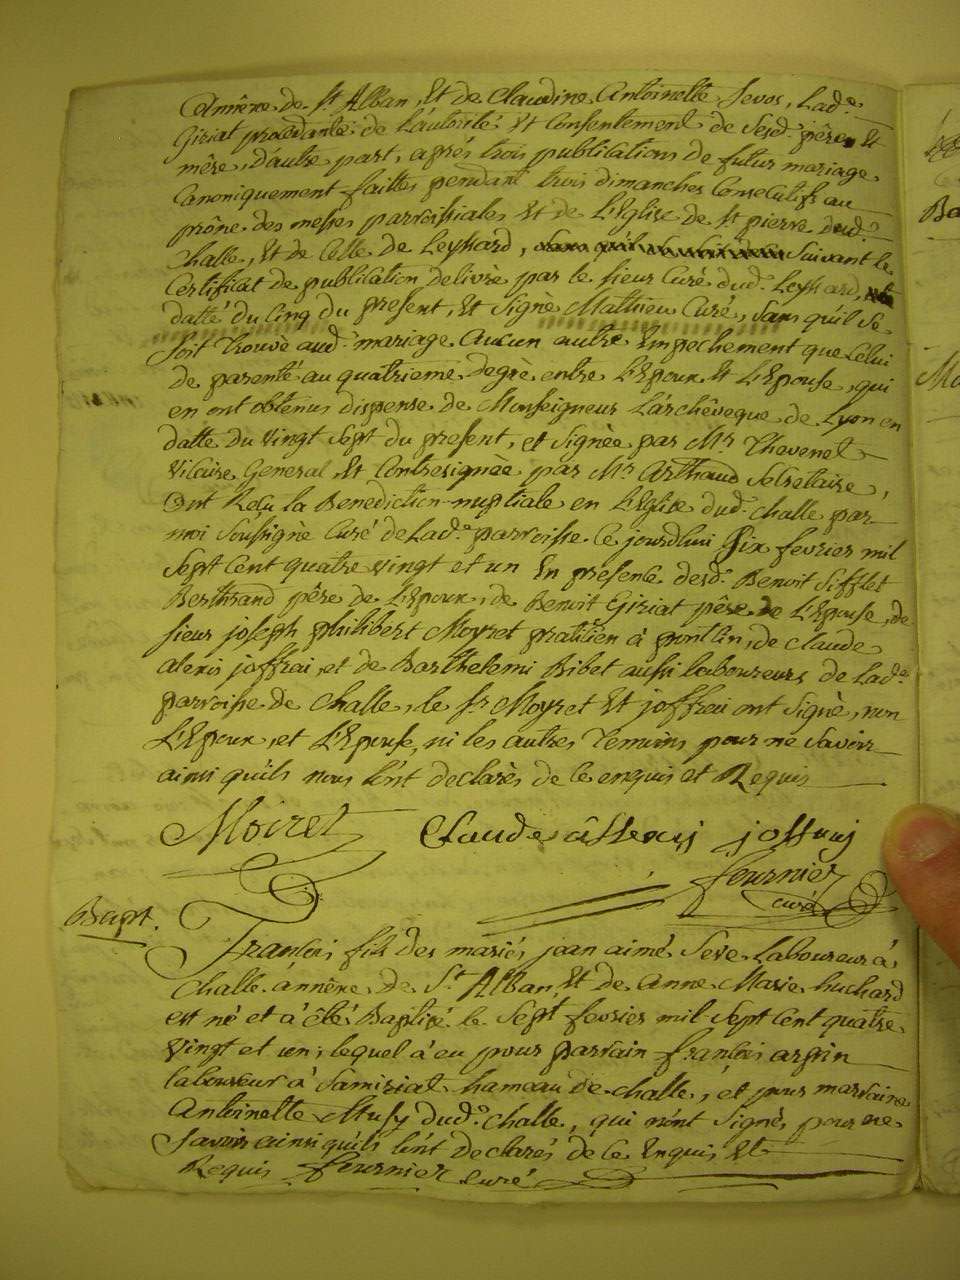 annêxe de St Alban, Et de Claudine Antoinette Sevos, Lade.
Giriat procedante de L'autorité Et Consentement de Sesd. pêre Et
mêre, D'autre part, aprés trois publications de futur mariage
Canoniquement faittes pendant trois dimanches Consecutifs au
prône des messes parroissiales Et de L'Eglise de St pierre dud.
Challe, Et de Celle de Leyssard, Suivant le
Certificat de publication Delivré par le sieur Curé dud. Leyssard,
datté du Cinq du present, Et Signé Mathieu Curé, Sans qu'il Se
Soit trouvé aud. mariage aucun autre Empechement que Celui
de parenté au quatrieme Degré entre L'Epoux Et L'Epouse, qui
en ont obtenus dispense de Monseigneur L'archêveque de Lyon en
datte du vingt Sept du present, et Signée par Mr. Thevenet
Vicaire General, Et Contresignée par Mr. Arthaud Secretaire,
Ont Reçu la Benediction nuptiale en L'Eglise dud. Challe par
moi Soussigné Curé de Lade. parroisse Ce jourdhui Six fevrier mil
Sept Cent quatre vingt et un En presence desd. Benoit Sifflet
Berthrand pêre de L'Epoux, de Benoit Giriat pêre de L'Epouse, de
sieur joseph philibert Moyret praticien à pontlin, de Claude
alexis joffrai, et de Barthelemi Bibet aussi laboureurs de Lade.
parroisse de Challe, le Sr Moyret Et joffrai ont Signé, non
L'Epoux, et L'Epouse, ni les autres Temoins pour ne Savoir
ainsi quils nous L'ont declarés de Ce enquis et Requis
Moiret Claude âllexij joffraij
fournier
curé
Bapt. François fils des mariés jean aimé Seve Laboureur à
Challe annêxe de St Alban, Et de anne Marie huchard
est né et à êté Baptisé le Sept fevrier mil Sept Cent quatre
vingt et un; lequel à eu pour parrain françois
laboureur à Samiriat hameau de Challe, et pour marraine
Antoinette dude. Challe, qui n'ont Signés pour ne
Savoir ainsi quils l'ont declarés de Ce Enquis Et
Requis fournier curé